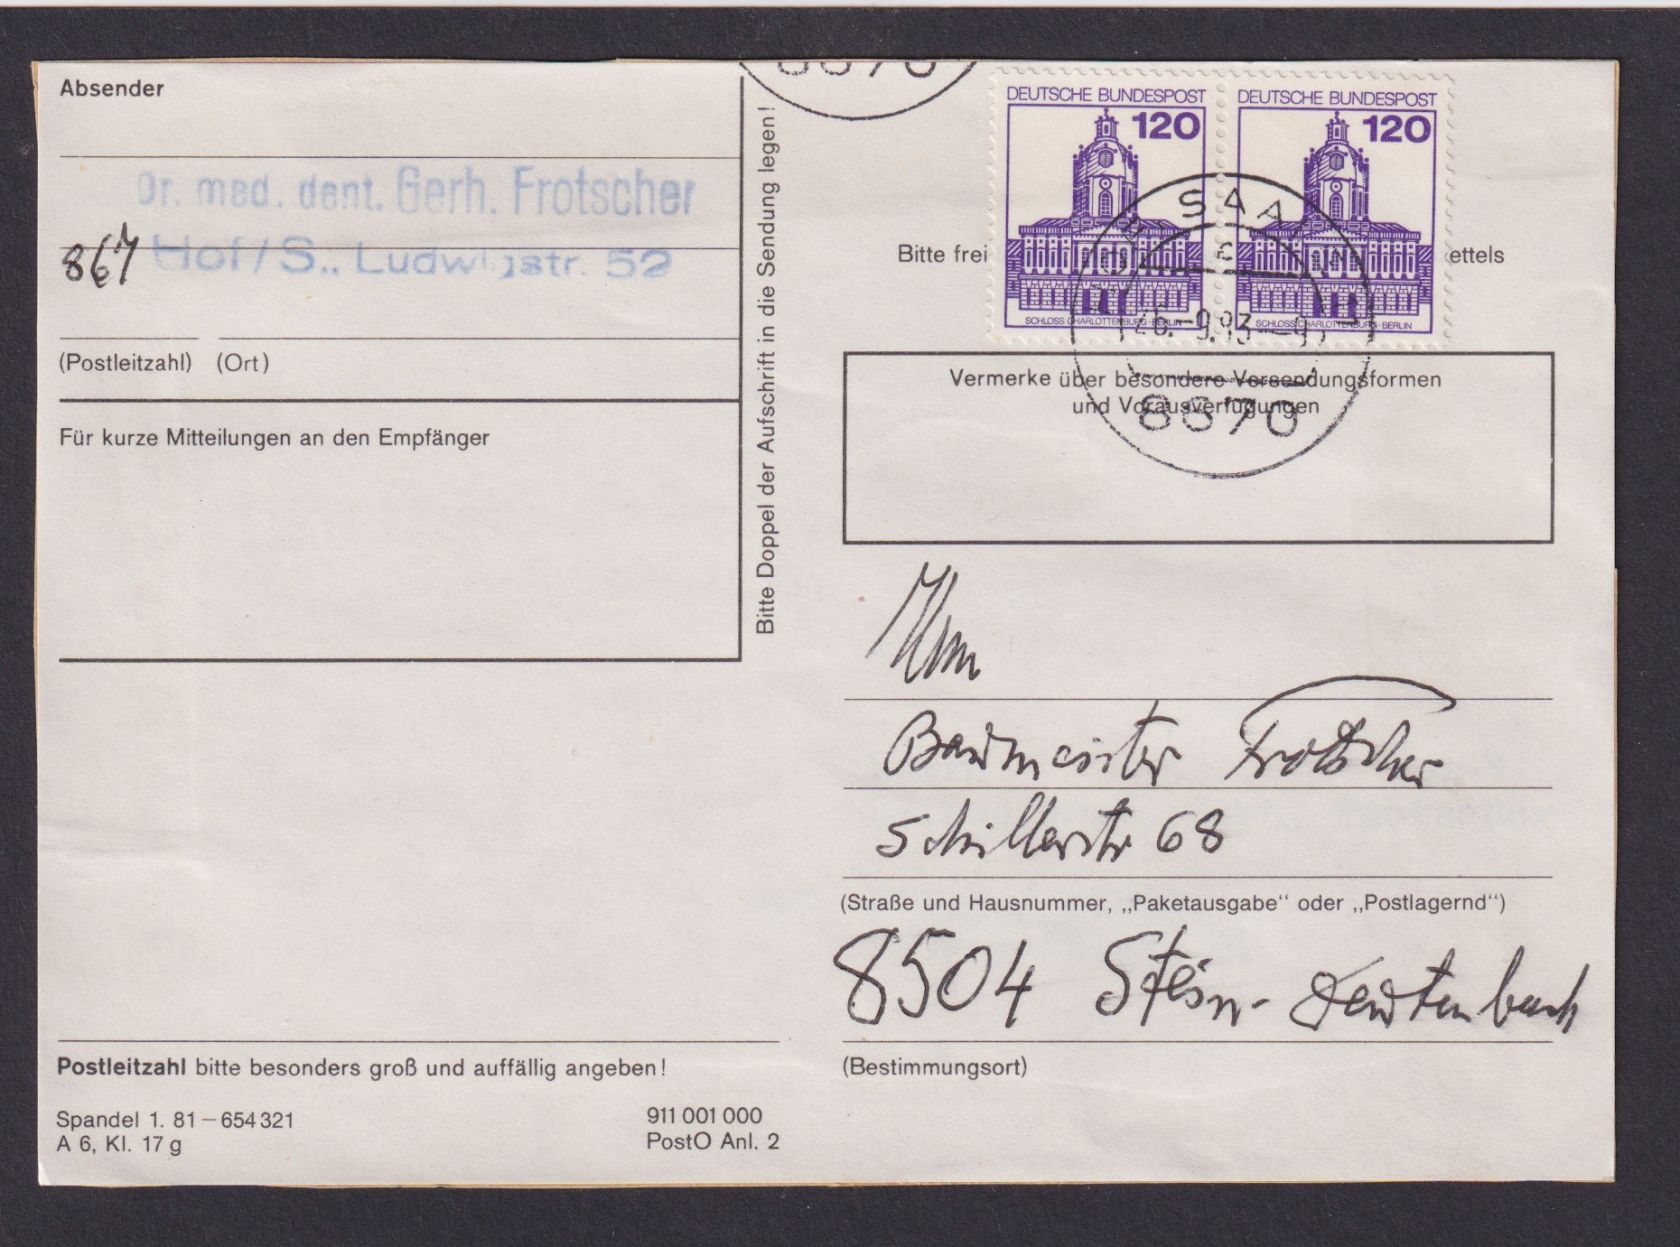 Absender
Dr. med. dent. Gerh. Frotscher
867 Hof/S., Ludwigstr. 52
(Postleitzahl) (Ort)
Für kurze Mitteilungen an den Empfänger
Bitte Doppel der Aufschrift in die Sendung legen!
8670
DEUTSCHE BUNDESPOST
120
SCHLOSS CHARLOTTENBURG · BERLIN
DEUTSCHE BUNDESPOST
120
SCHLOSS CHARLOTTENBURG · BERLIN
SAA
c
-9.83-9
8670
Bitte frei
ettels
Vermerke über besondere Versendungsformen
und Vorausverfügungen
Herrn
Baumeister Frotscher
Schillerstr 68
(Straße und Hausnummer, „Paketausgabe“ oder „Postlagernd“)
8504 Stein- Deutenbach
(Bestimmungsort)
Postleitzahl bitte besonders groß und auffällig angeben!
Spandel 1. 81 – 654 321
A 6, Kl. 17 g
911 001 000
PostO Anl. 2